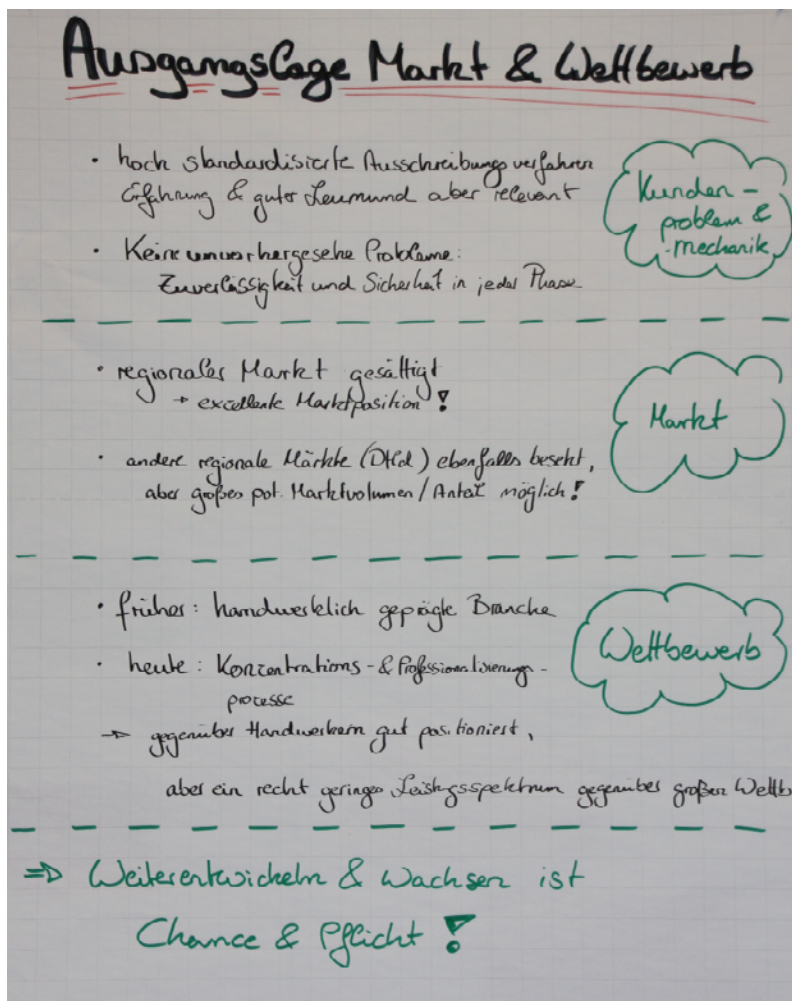 Ausgangslage Markt & Wettbewerb
• hoch standardisierte Ausschreibungsverfahren
Erfahrung & guter Leumund aber relevant
Kunden-
problem &
-mechanik
• Keine unvorhergesehe Probleme:
Zuverlässigkeit und Sicherheit in jeder Phase
• regionaler Markt gesättigt
→ excellente Marktposition !
Markt
• andere regionale Märkte (Dtld) ebenfalls besetzt,
aber großes pot. Marktvolumen / Anteil möglich !
• früher: handwerklich geprägte Branche
Wettbewerb
• heute: Konzentrations- & Professionalisierungs-
prozesse
→ gegenüber Handwerkern gut positioniert,
aber ein recht geringes Leistungsspektrum gegenüber großen Wettb
⇒ Weiterentwickeln & Wachsen ist
Chance & Pflicht !